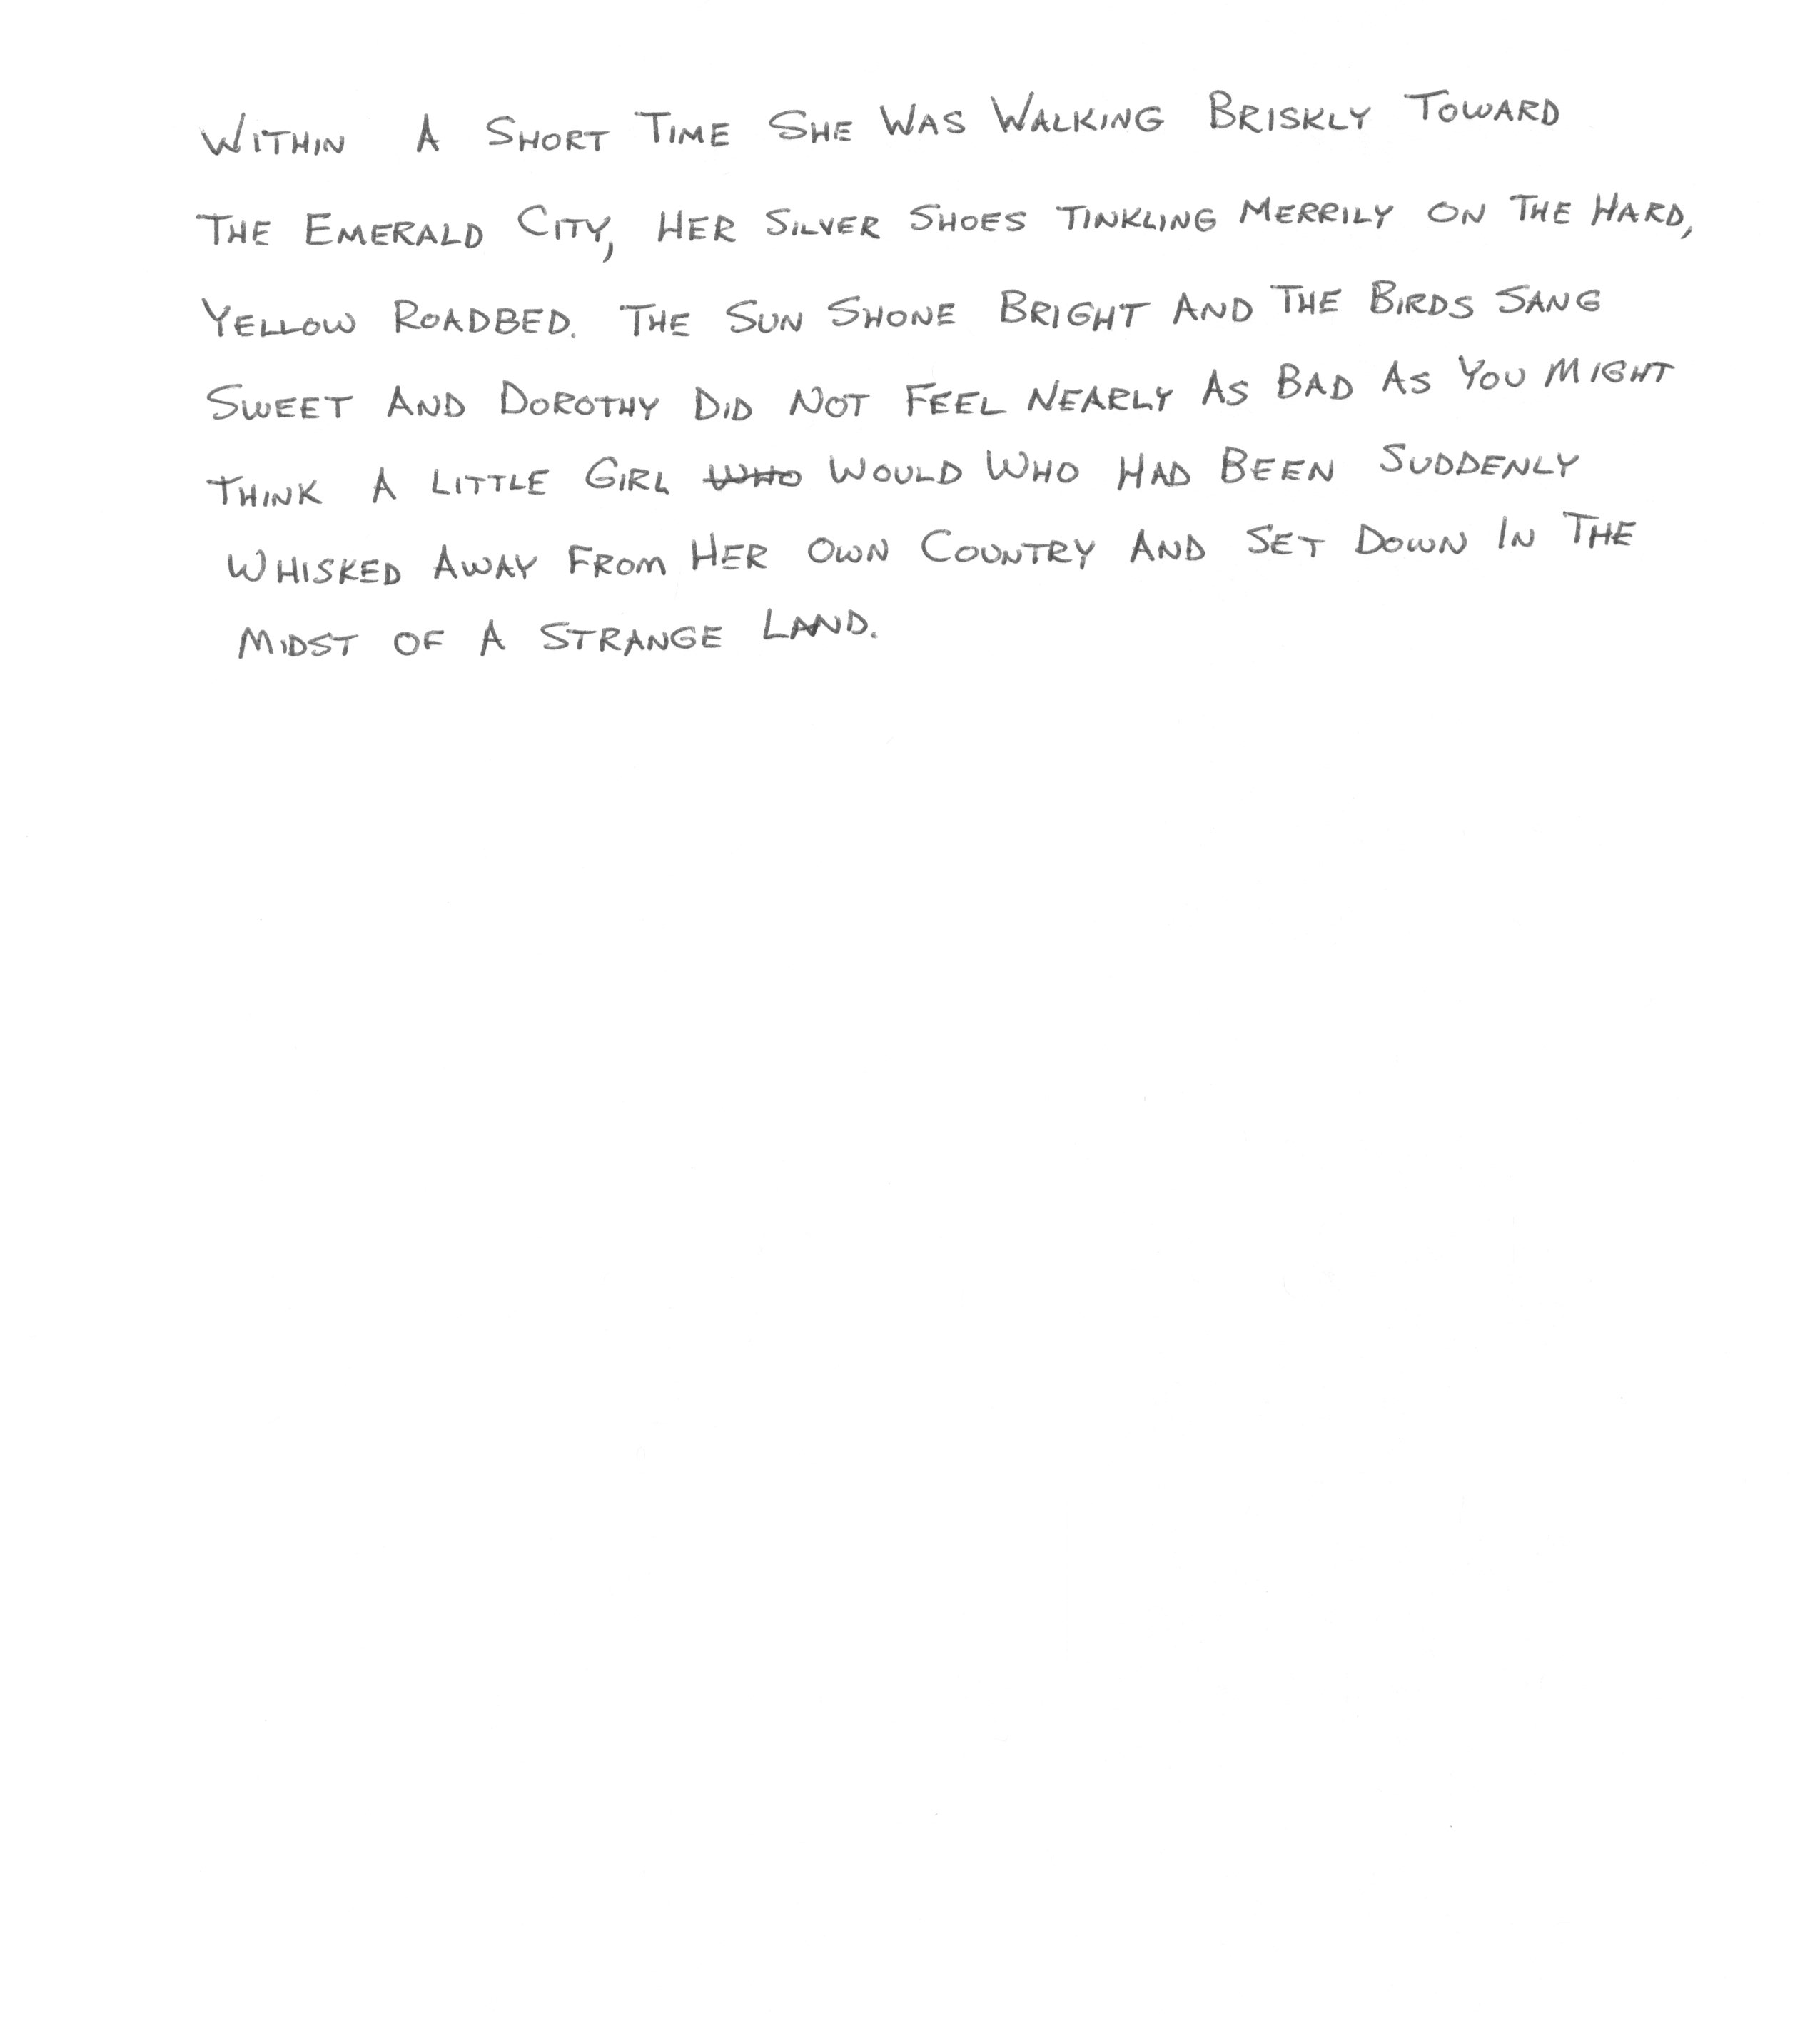 Within A Short Time She Was Walking Briskly Toward
The Emerald City, Her Silver Shoes Tinkling Merrily On The Hard,
Yellow Roadbed. The Sun Shone Bright And The Birds Sang
Sweet And Dorothy Did Not Feel Nearly As Bad As You Might
Think A Little Girl ~~Who~~ Would Who Had Been Suddenly
Whisked Away From Her Own Country And Set Down In The
Midst Of A Strange Land.